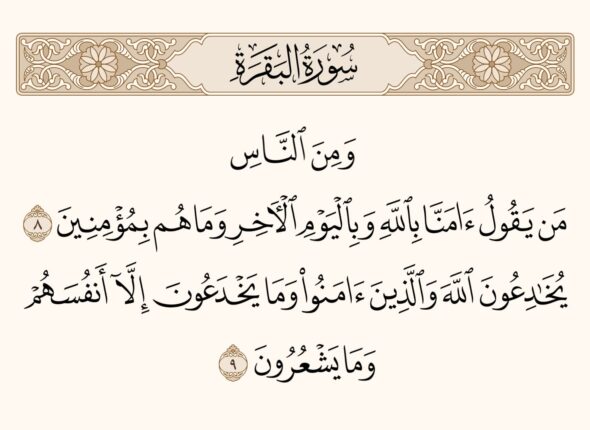 سُورَةُ البَقَرَةِ
وَمِنَ ٱلنَّاسِ
مَن يَقُولُ ءَامَنَّا بِٱللَّهِ وَبِٱلۡيَوۡمِ ٱلۡأٓخِرِ وَمَا هُم بِمُؤۡمِنِينَ ٨
يُخَٰدِعُونَ ٱللَّهَ وَٱلَّذِينَ ءَامَنُواْ وَمَا يَخۡدَعُونَ إِلَّآ أَنفُسَهُمۡ
وَمَا يَشۡعُرُونَ ٩